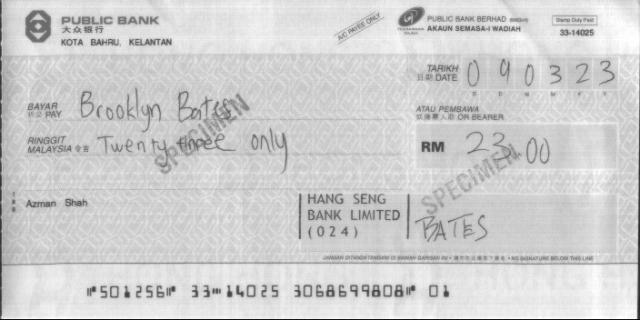 PUBLIC BANK
大众银行
KOTA BAHRU, KELANTAN
A/C PAYEE ONLY
PUBLIC BANK BERHAD
AKAUN SEMASA-I WADIAH
Stamp Duty Paid
33-14025
TARIKH
日期 DATE 090323
D D M M Y Y
BAYAR
PAY Brooklyn Bates
ATAU PEMBAWA
OR BEARER
RINGGIT
MALAYSIA Twenty three only
RM 23.00
SPECIMEN
SPECIMEN
Azman Shah
HANG SENG
BANK LIMITED
(024)
BATES
NO SIGNATURE BELOW THIS LINE
⑈501256⑈ 33⑉14025 3068699808⑈ 01